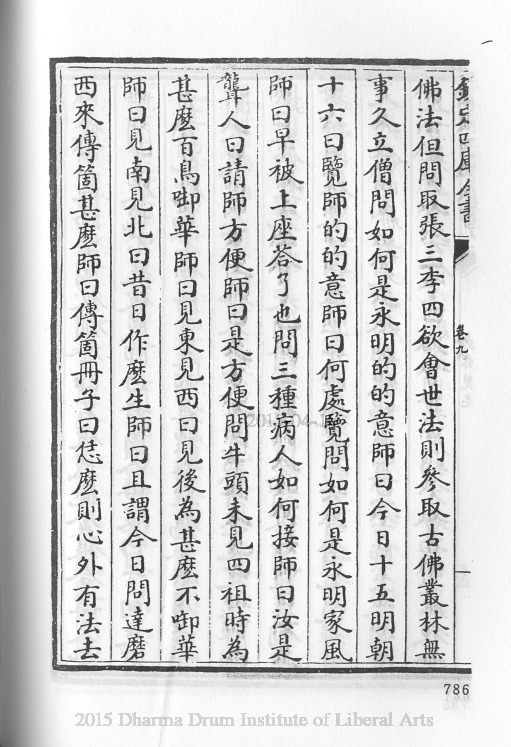 欽定四庫全書
卷九
佛法但問取張三李四欲會世法則參取古佛叢林無
事久立僧問如何是永明的的意師曰今日十五明朝
十六曰覽師的的意師曰何處覽問如何是永明家風
師曰早被上座答了也問三種病人如何接師曰汝是
聾人曰請師方便師曰是方便問牛頭未見四祖時為
甚麼百鳥㗸華師曰見東見西曰見後為甚麼不㗸華
師曰見南見北曰昔日作麼生師曰且謂今日問達磨
西來傳箇甚麼師曰傳箇冊子曰恁麼則心外有法去
786
2015 Dharma Drum Institute of Liberal Arts